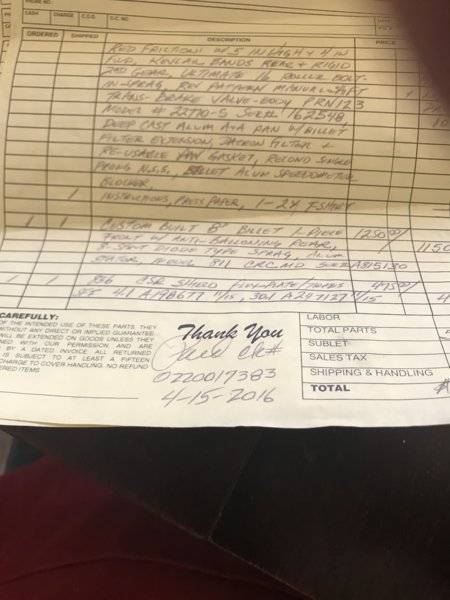 CASH CHARGE C.O.D.
ORDERED SHIPPED DESCRIPTION PRICE
RED FRICTIONS W/ 5 IN HIGH & 4 IN
FWD, KEVLAR BANDS REAR & RIGID
2ND GEAR, ULTIMATE 16 ROLLER BOLT-
IN-SPRAG, REV PATTERN MANUAL SHIFT
TRANS-BRAKE VALVE-BODY, PRN123
MODEL # 22710-5 SER# 162548,
DEEP CAST ALUM A&A PAN W/ BILLET
FILTER EXTENSION, DACRON FILTER &
RE-USABLE PAN GASKET, SINGLE
PRONG N.S.S., BILLET ALUM SPEEDOMETER
BLOCKER,
1 INSTRUCTIONS, PRESS PAPER, 1-2X T-SHIRT
1 1 CUSTOM BUILT 8" BILLET 1-PIECE 1250 00/ 1150
FRONT W/ ANTI-BALLOONING REAR,
DIODE TYPE SPRAG, ALUM
STATOR, MODEL 811 CRC.MD SER#A815130
1 1 CSR SHIELD 475 00/ 4
CAREFULLY:
OF THE INTENDED USE OF THESE PARTS. THEY
WITHOUT ANY DIRECT OR IMPLIED GUARANTEE.
WILL BE EXTENDED ON GOODS UNLESS THEY
NED WITH OUR PERMISSION AND ARE
BY A DATED INVOICE. ALL RETURNED
IS SUBJECT TO AT LEAST A FIFTEEN
CHARGE TO COVER HANDLING. NO REFUND
RED ITEMS
Thank You
Paid Ck#
0220017383
4-15-2016
LABOR
TOTAL PARTS
SUBLET
SALES TAX
SHIPPING & HANDLING
TOTAL